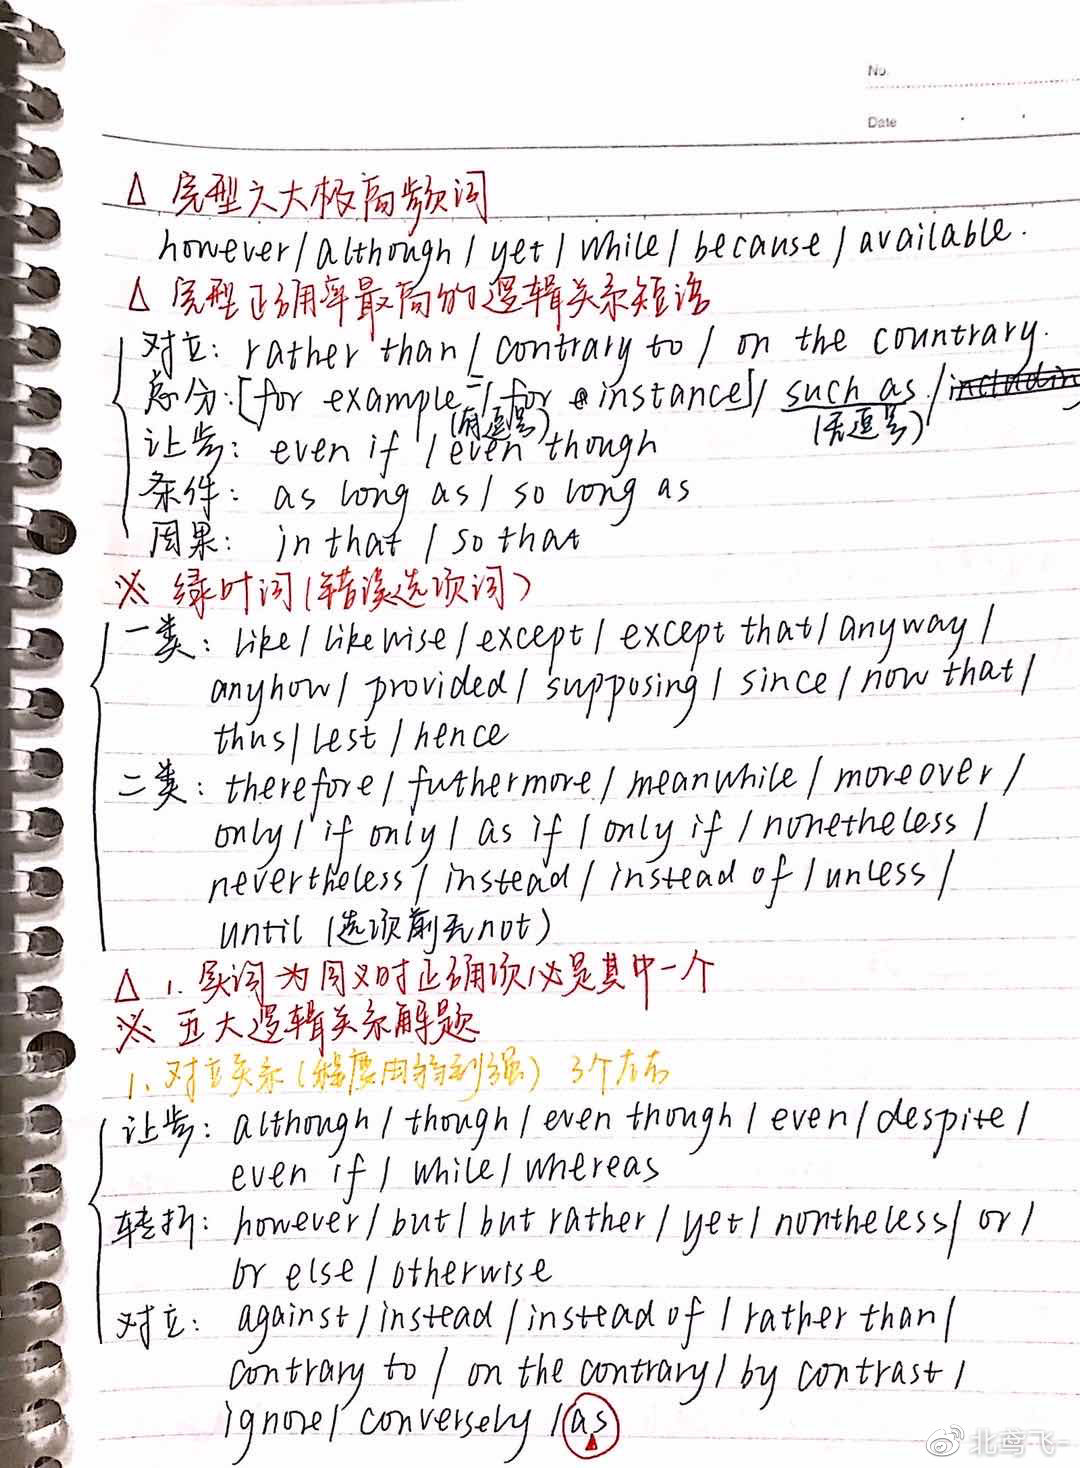 No.
Date
△ 完型六大极高频词
however / although / yet / while / because / available.
△ 完型正确率最高的逻辑关系短语
对立: rather than / contrary to / on the countrary.
总分: [for example / for instance] / such as / includin
(有逗号) (无逗号)
让步: even if / even though
条件: as long as / so long as
因果: in that / so that
※ 绿叶词 (错误选项词)
一类: like / likewise / except / except that / anyway /
anyhow / provided / supposing / since / now that /
thus / lest / hence
二类: therefore / futhermore / meanwhile / moreover /
only / if only / as if / only if / nonetheless /
nevertheless / instead / instead of / unless /
until (选项前无not)
△ 1. 实词为同义时正确项必是其中一个
※ 五大逻辑关系解题
1. 对立关系 (程度由弱到强) 3个左右
让步: although / though / even though / even / despite /
even if / while / whereas
转折: however / but / but rather / yet / nontheless / or /
or else / otherwise
对立: against / instead / instead of / rather than /
contrary to / on the contrary / by contrast /
ignore / conversely / as
北鸢飞-